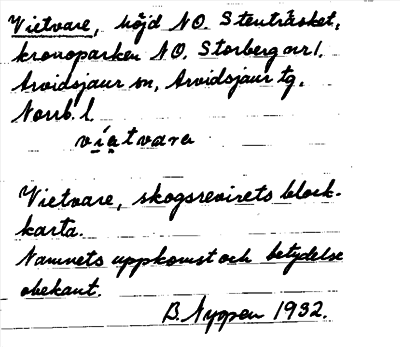 Vietvare, höjd NO. Stenträsket,
kronoparken NO. Storberg nr 1.
Arvidsjaur sn, Arvidsjaur tg,
Norrb. l.
víatvara
Vietvare, skogsrevirets block-
karta.
Namnets uppkomst och betydelse
obekant.
B. Nyqvist 1932.